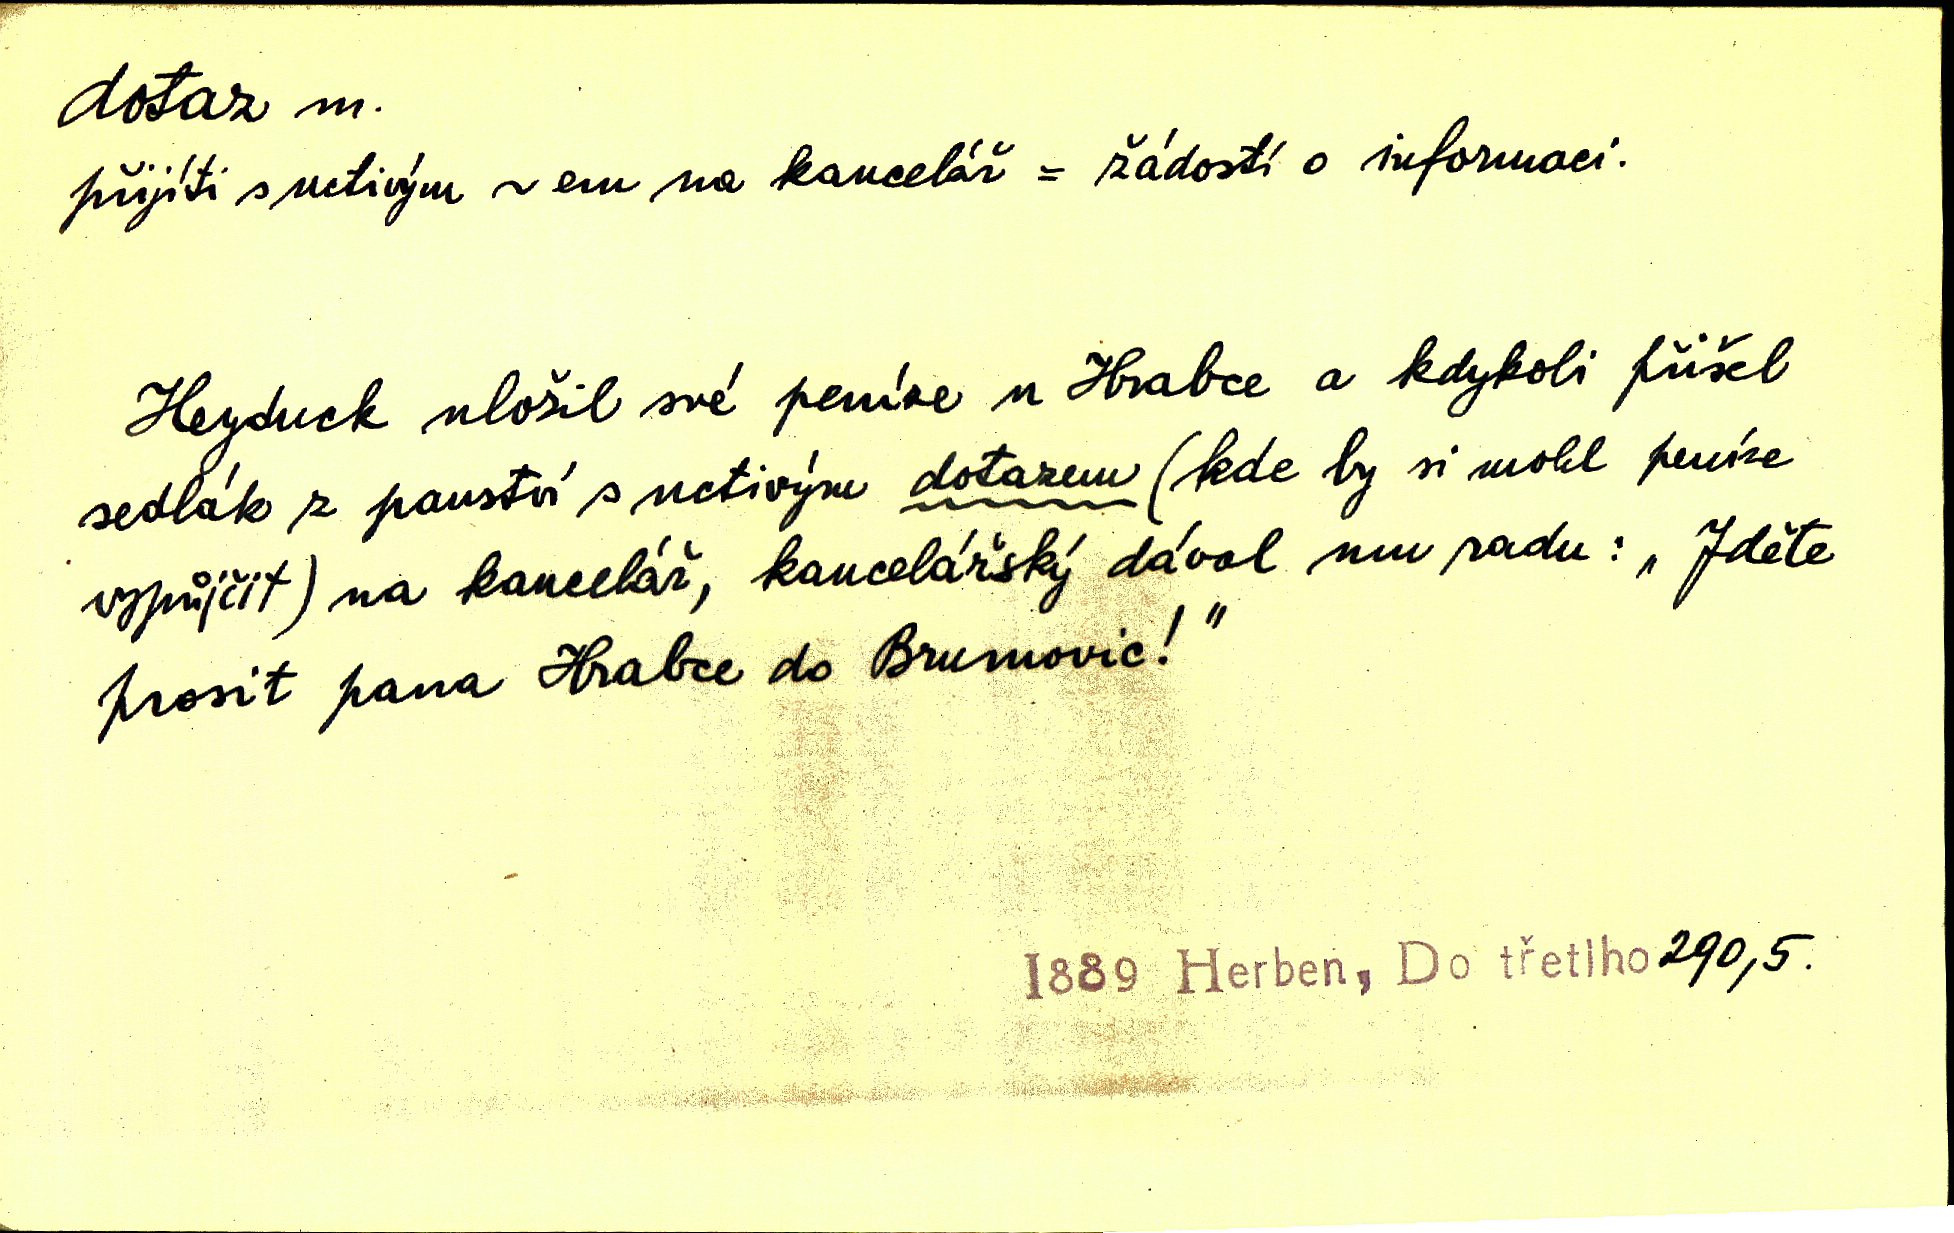 dotaz m.
přijíti s uctivým ~ em na kancelář = žádostí o informaci.
Heyduck uložil své peníze u Hrabce a kdykoli přišel
sedlák z panství s uctivým dotazem (kde by si mohl peníze
vypůjčit) na kancelář, kancelářský dával mu radu: „Jděte
prosit pana Hrabce do Brumovic!"
1889 Herben, Do třetího 290,5.